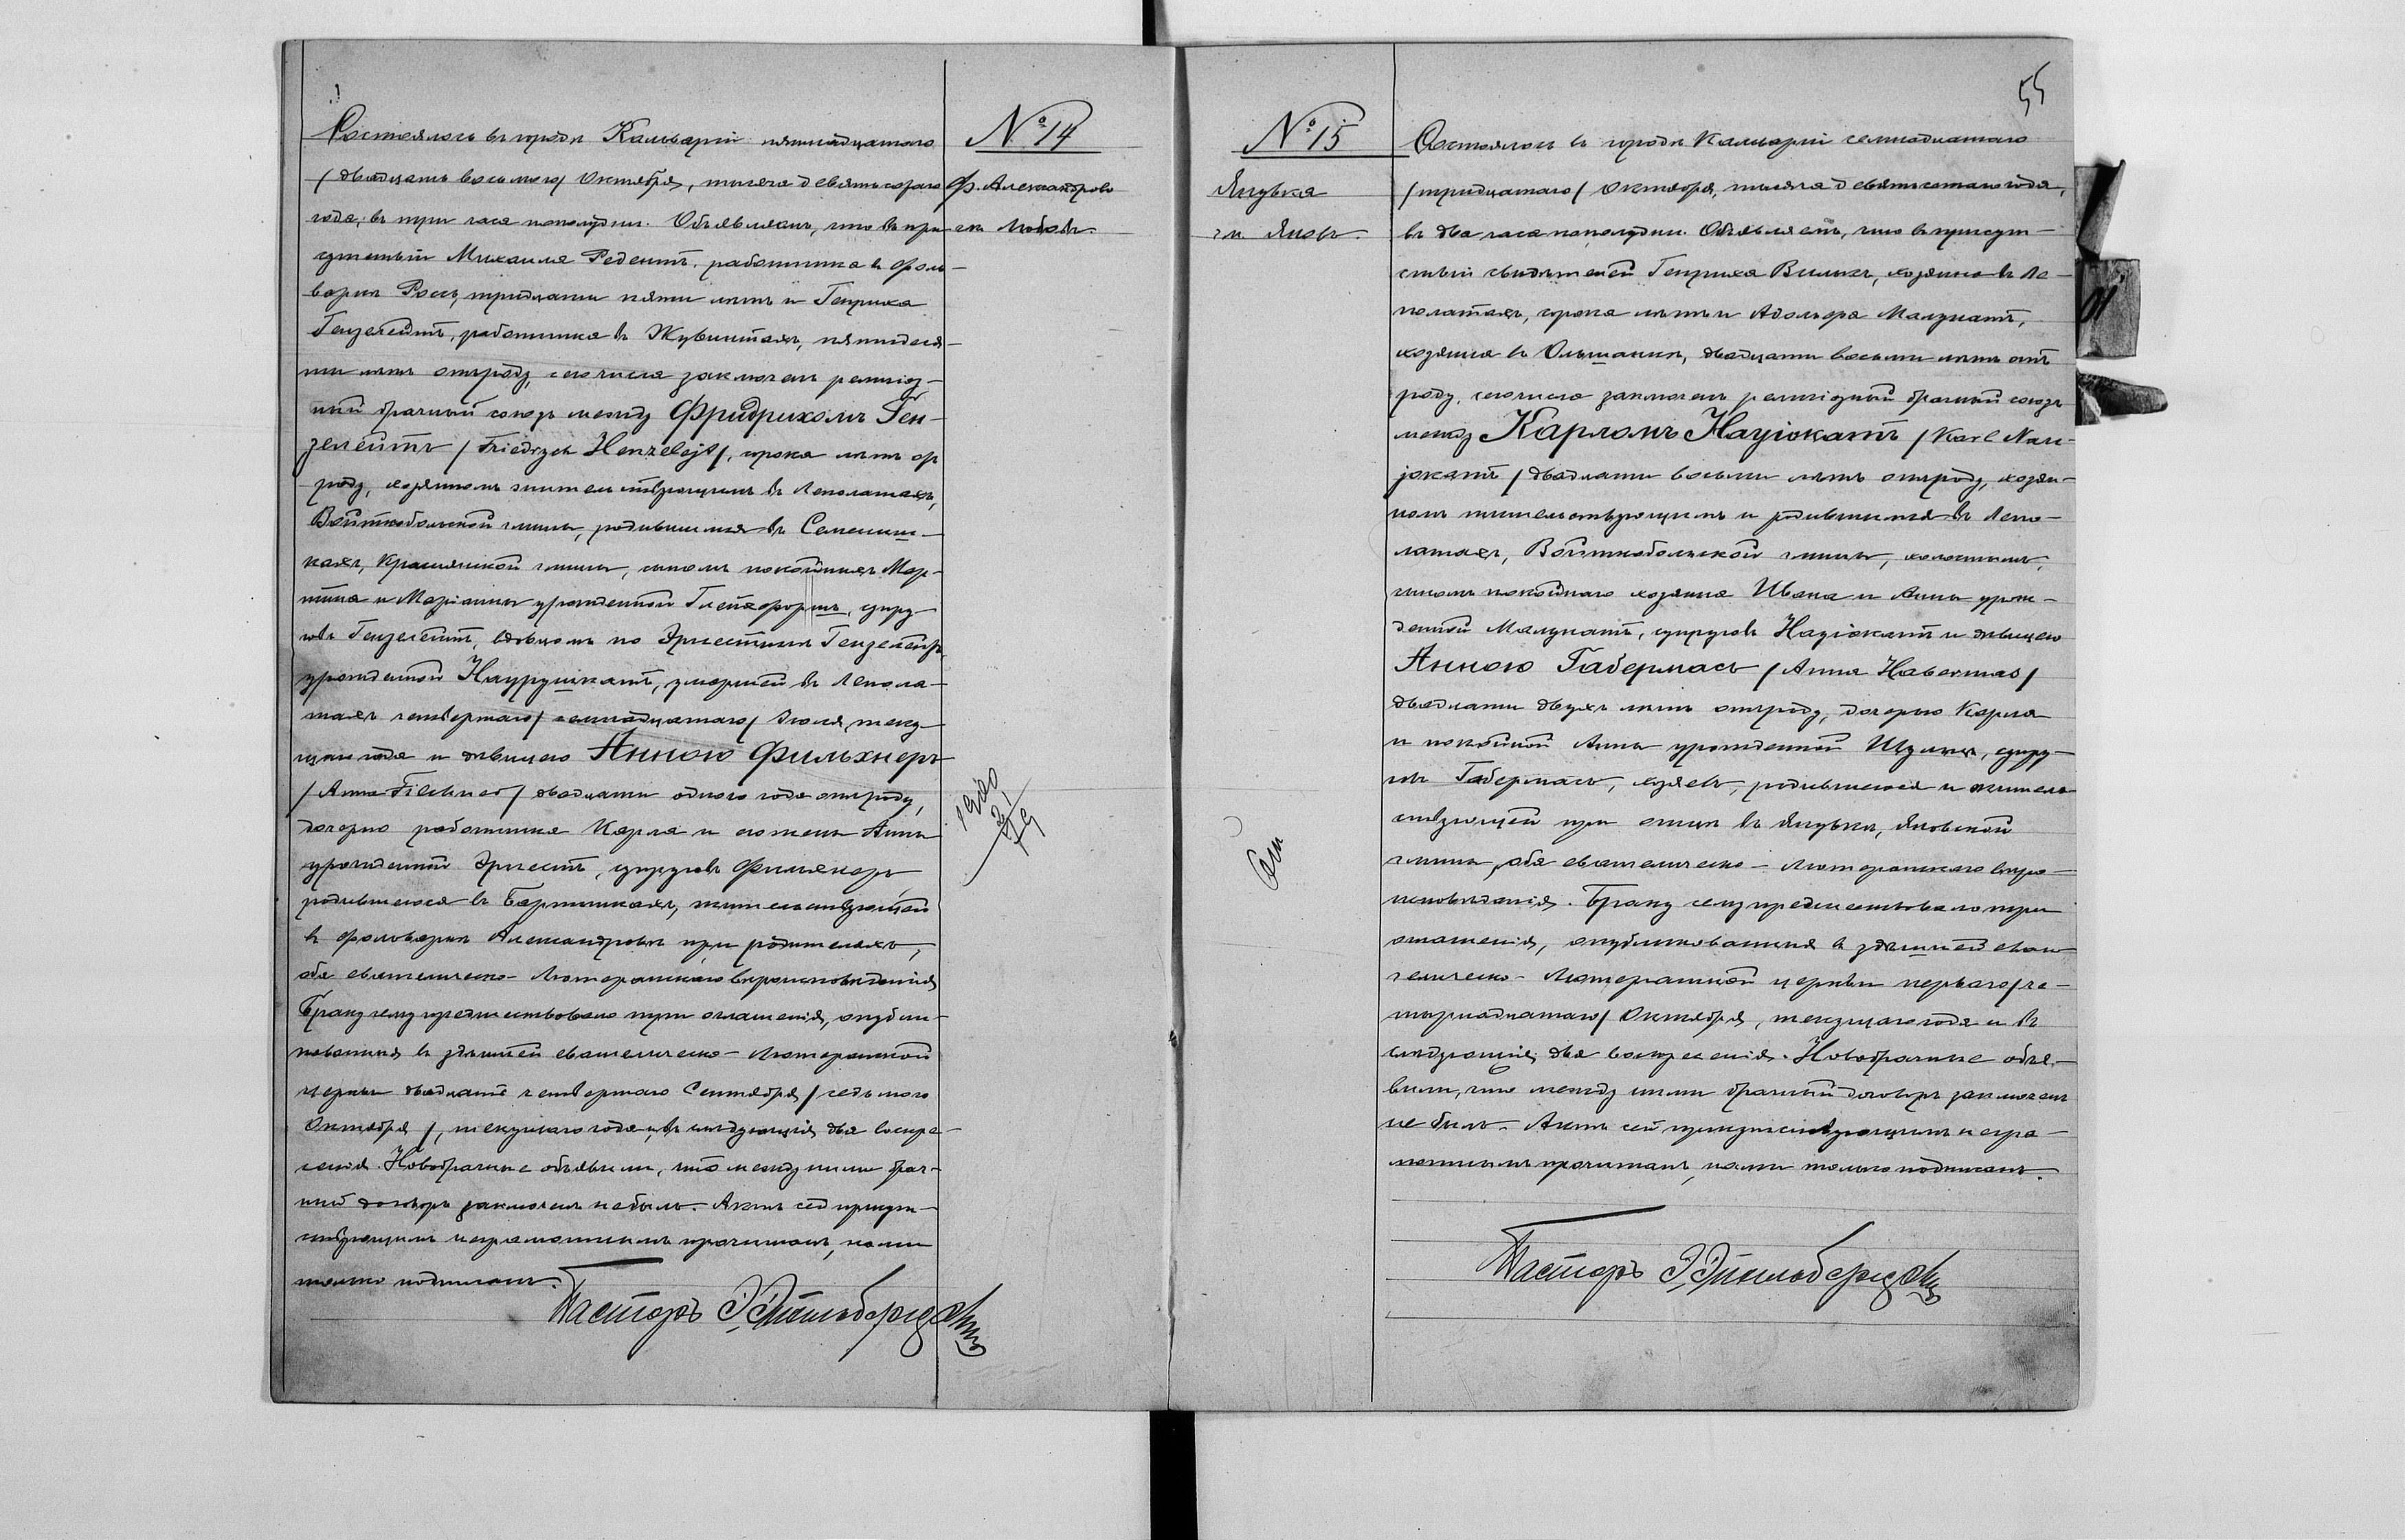 Состоялось въ городѣ Кальваріи пятнадцатаго
/двадцать восьмого/ Октября, тысяча девятьсотаго
года, въ три часа пополудни. Объявляемъ, что въ при-
сутствіи Михаила Редентъ, работника въ фоль-
варкѣ Россь, тридцати пяти лѣтъ и Генриха
Гензелейтъ, работника въ Жувинтахъ, пятидеся-
ти лѣтъ отъ роду, сего числа заключенъ религіоз-
ный брачный союзъ между Фридрихомъ Ген-
зелейтъ /Friedrych Henzelejt/, сорока лѣтъ отъ
роду, хозяиномъ жительствующимъ въ Лепалатахъ,
Войткобольской гмины, родившимся въ Семениш-
кахъ, Красненской гмины, сыномъ покойныхъ Мар-
тина и Маріанны урожденной супру-
говъ Гензелейтъ, вдовцомъ по Эрнестинѣ Гензелейтъ,
урожденной Наурушкатъ, умершей въ Лепала-
тахъ четвертаго /семнадцатаго/ Іюля, теку-
щаго года и дѣвицею Анною Фильхнеръ
/Anna Filchner/ двадцати одного года отъ роду,
дочерью работника Карла и его жены Анны
урожденной Эрнестъ, супруговъ Фильхнеръ
родившеюся въ Бартникахъ, жительствующей
въ фольваркѣ Александровѣ при родителяхъ,
оба евангелическо-Лютеранскаго вѣроисповѣданія
Браку сему предшествовало три оглашенія, опубли-
кованныя въ здѣшней евангелическо-Лютеранской
церкви двадцать четвертаго Сентября /седьмого
Октября/, текущаго года и въ слѣдующія два воскре-
сенія. Новобрачные объявили, что между ними брач-
ный договоръ заключенъ не былъ. Актъ сей присут-
ствующимъ неграмотнымъ прочитанъ, нами
только подписанъ.
Пасторъ
№ 14
Ф. Александрово
гм. Любовъ.
1900
2/19
№ 15
Ягувка
гм. Яновъ.
55
Состоялось въ городѣ Кальваріи семнадцатаго
/тридцатаго/ Октября, тысяча девятьсотаго года,
въ два часа пополудни. Объявляемъ, что въ присут-
ствіи свидѣтелей Генриха Вилькъ, хозяина въ Ле-
палатахъ, сорока лѣтъ и Адольфа Малукатъ,
хозяина въ Ольшанкѣ, двадцати восьми лѣтъ отъ
роду, сего числа заключенъ религіозный брачный союзъ
между Карломъ Науіокатъ /Karl Nau-
jokatt/ двадцати восьми лѣтъ отъ роду, хозяи-
номъ жительствующимъ и родившимся въ Лепа-
латахъ, Войткобольской гмины, холостымъ,
сыномъ покойнаго хозяина Ивана и Анны урож-
денной Малукатъ, супруговъ Науіокатъ и дѣвицею
Анною Габермасъ /Anna Habermas/
двадцати двухъ лѣтъ отъ роду, дочерью Карла
и покойной Анны урожденной Шульцъ, супру-
говъ Габермасъ, хозяевъ, родившеюся и житель-
ствующей при отцѣ въ Ягувкѣ, Яновской
гмины, оба евангелическо-Лютеранскаго вѣро-
исповѣданія. Браку сему предшествовало три
оглашенія, опубликованныя въ здѣшней еван-
гелическо-Лютеранской церкви перваго /че-
тырнадцатаго/ Октября, текущаго года и въ
слѣдующія два воскресенія. Новобрачные объя-
вили, что между ними брачный договоръ заключенъ
не былъ. Актъ сей присутствующимъ негра-
мотнымъ прочитанъ, нами только подписанъ.
Пасторъ